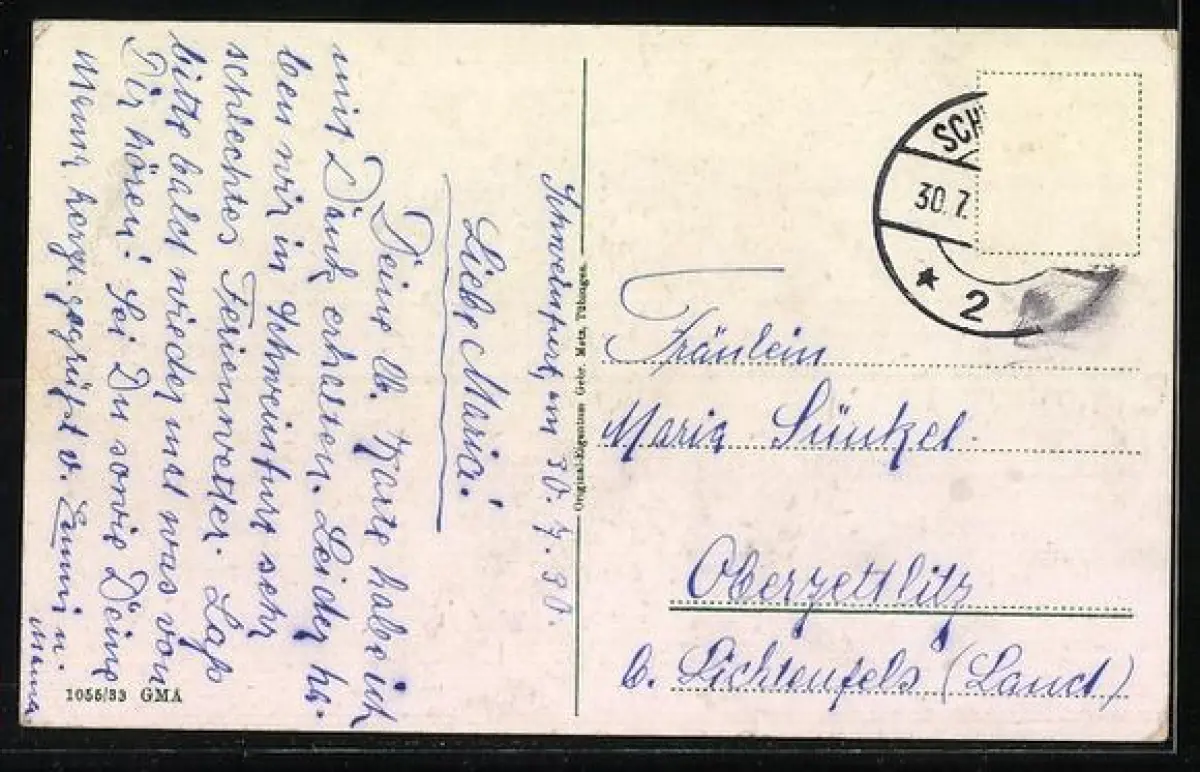 Schweinfurt, am 30.7.30.
Liebe Maria!
Deine lb. Karte habe ich
mit Dank erhalten. Leider ha-
ben wir in Schweinfurt sehr
schlechtes Ferienwetter. Laß
bitte bald wieder mal was von
Dir hören! Sei Du sowie Deine
herzl. gegrüßt v. Emmi u.
Mama.
1055/33 GMA
Original-Eigentum Gebr. Metz, Tübingen.
SCH
30.7.
* 2
Fräulein
Maria Sünkel.
Oberzettlitz
b. Lichtenfels (Land)